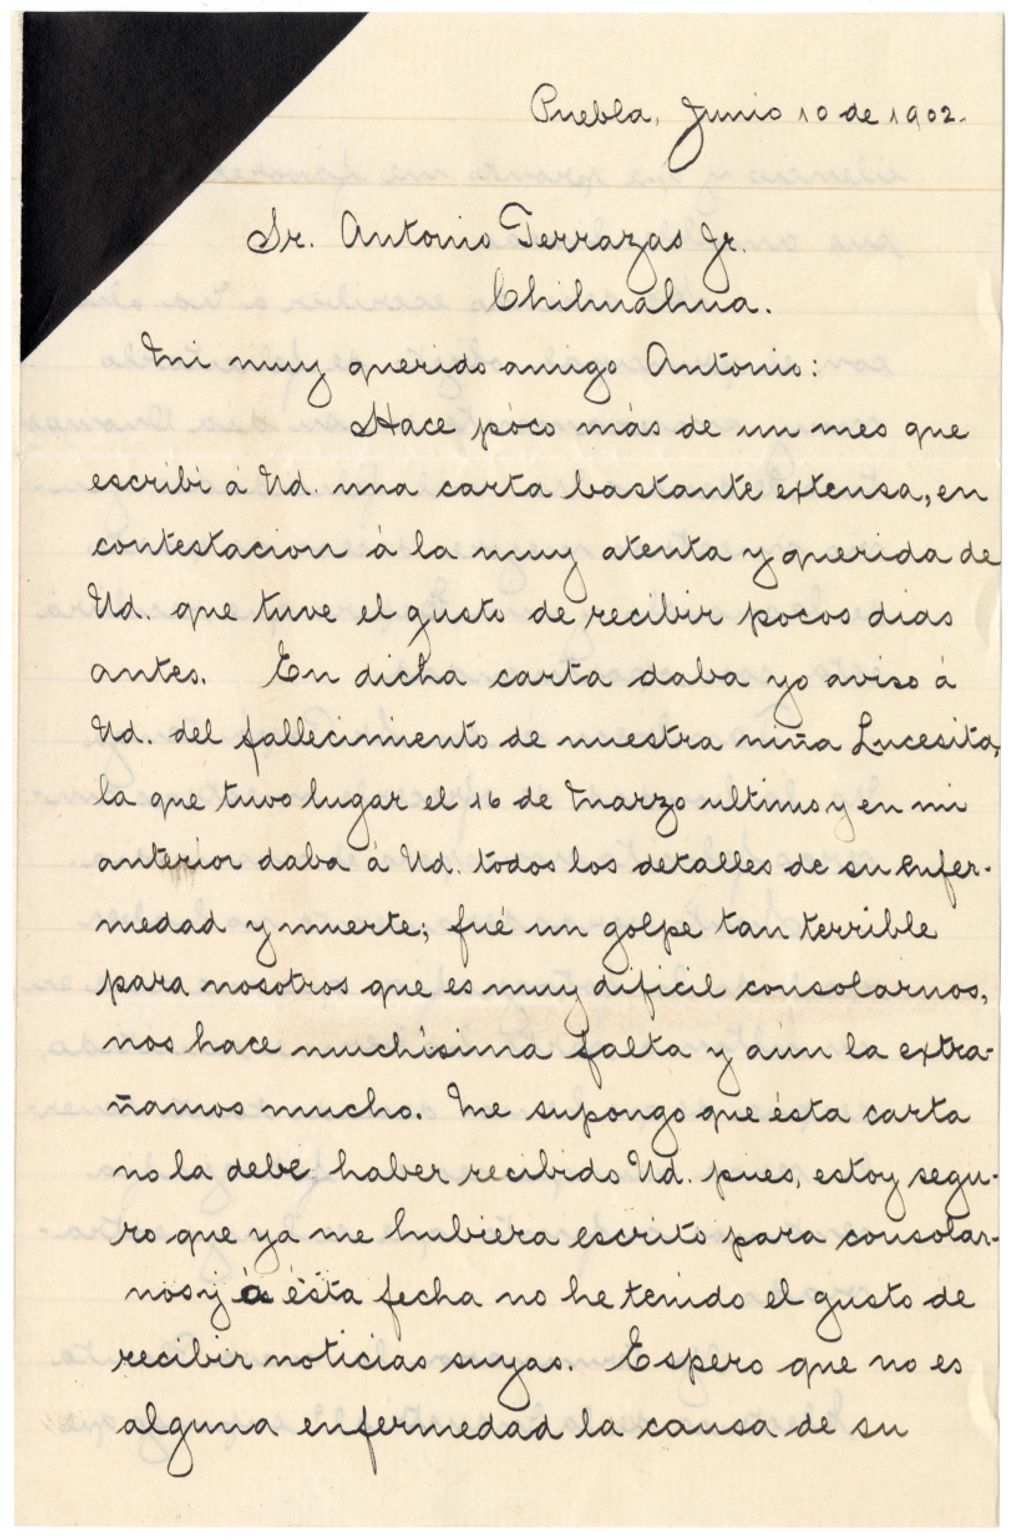 Puebla, Junio 10 de 1902.
Sr. Antonio Terrazas Jr.
Chihuahua.
Mi muy querido amigo Antonio:
Hace póco más de un mes que
escribi á Ud. una carta bastante extensa, en
contestacion á la muy atenta y querida de
Ud. que tuve el gusto de recibir pocos dias
antes. En dicha carta daba yo aviso á
Ud. del fallecimiento de nuestra niña Lucesita,
la que tuvo lugar el 16 de Marzo ultimo y en mi
anterior daba á Ud. todos los detalles de su enfer-
medad y muerte; fué un golpe tan terrible
para nosotros que es muy dificil consolarnos,
nos hace muchísima falta y aún la extra-
ñamos mucho. Me supongo que ésta carta
no la debe haber recibido Ud. pues, estoy segu-
ro que ya me hubiera escrito para consolar-
nos y á ésta fecha no he tenido el gusto de
recibir noticias suyas. Espero que no es
alguna enfermedad la causa de su